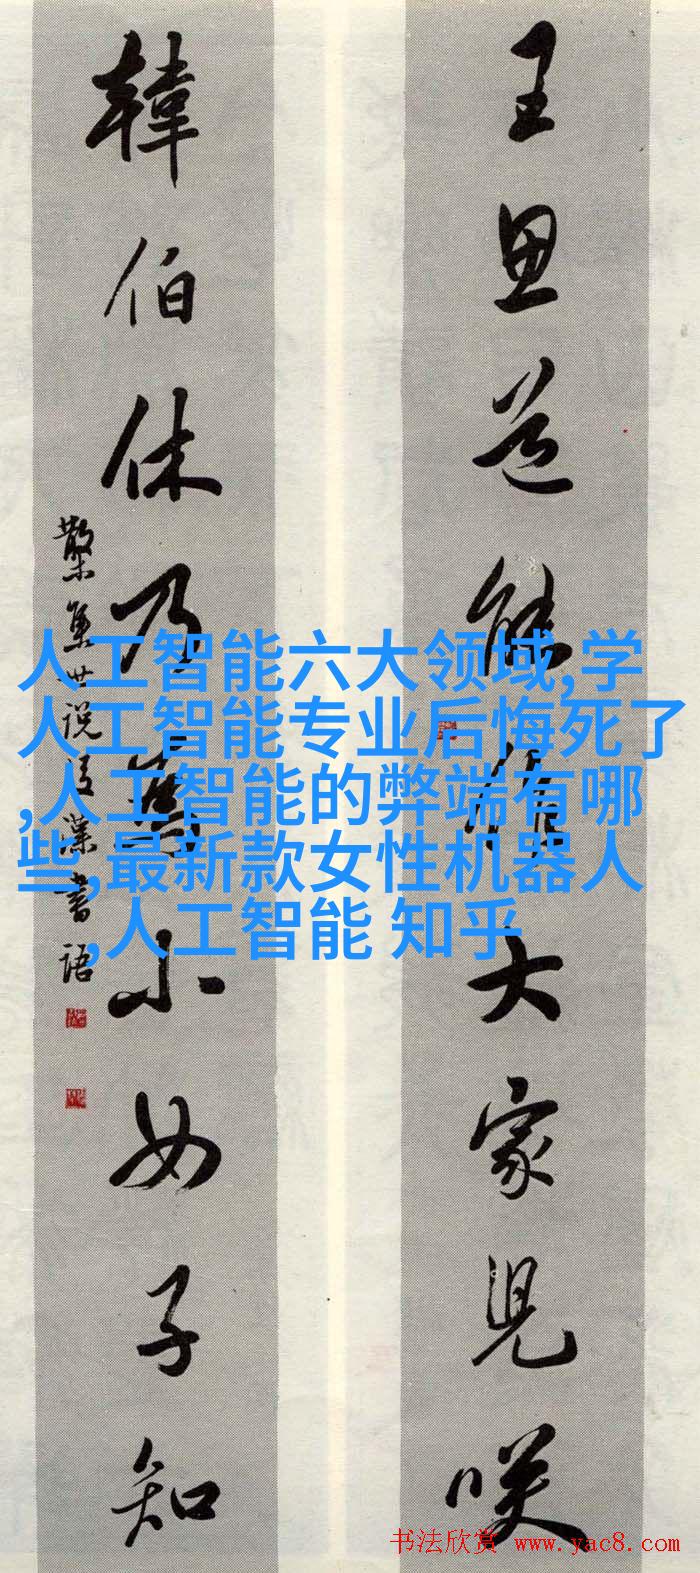 王思道能作大家兒咲
韓伯休乃為小女子知
集世說後漢書語
人工智能六大领域,学
人工智能专业后悔死了
,人工智能的弊端有哪
些,最新款女性机器人
,人工智能 知乎
书法欣赏 www.yac8.com